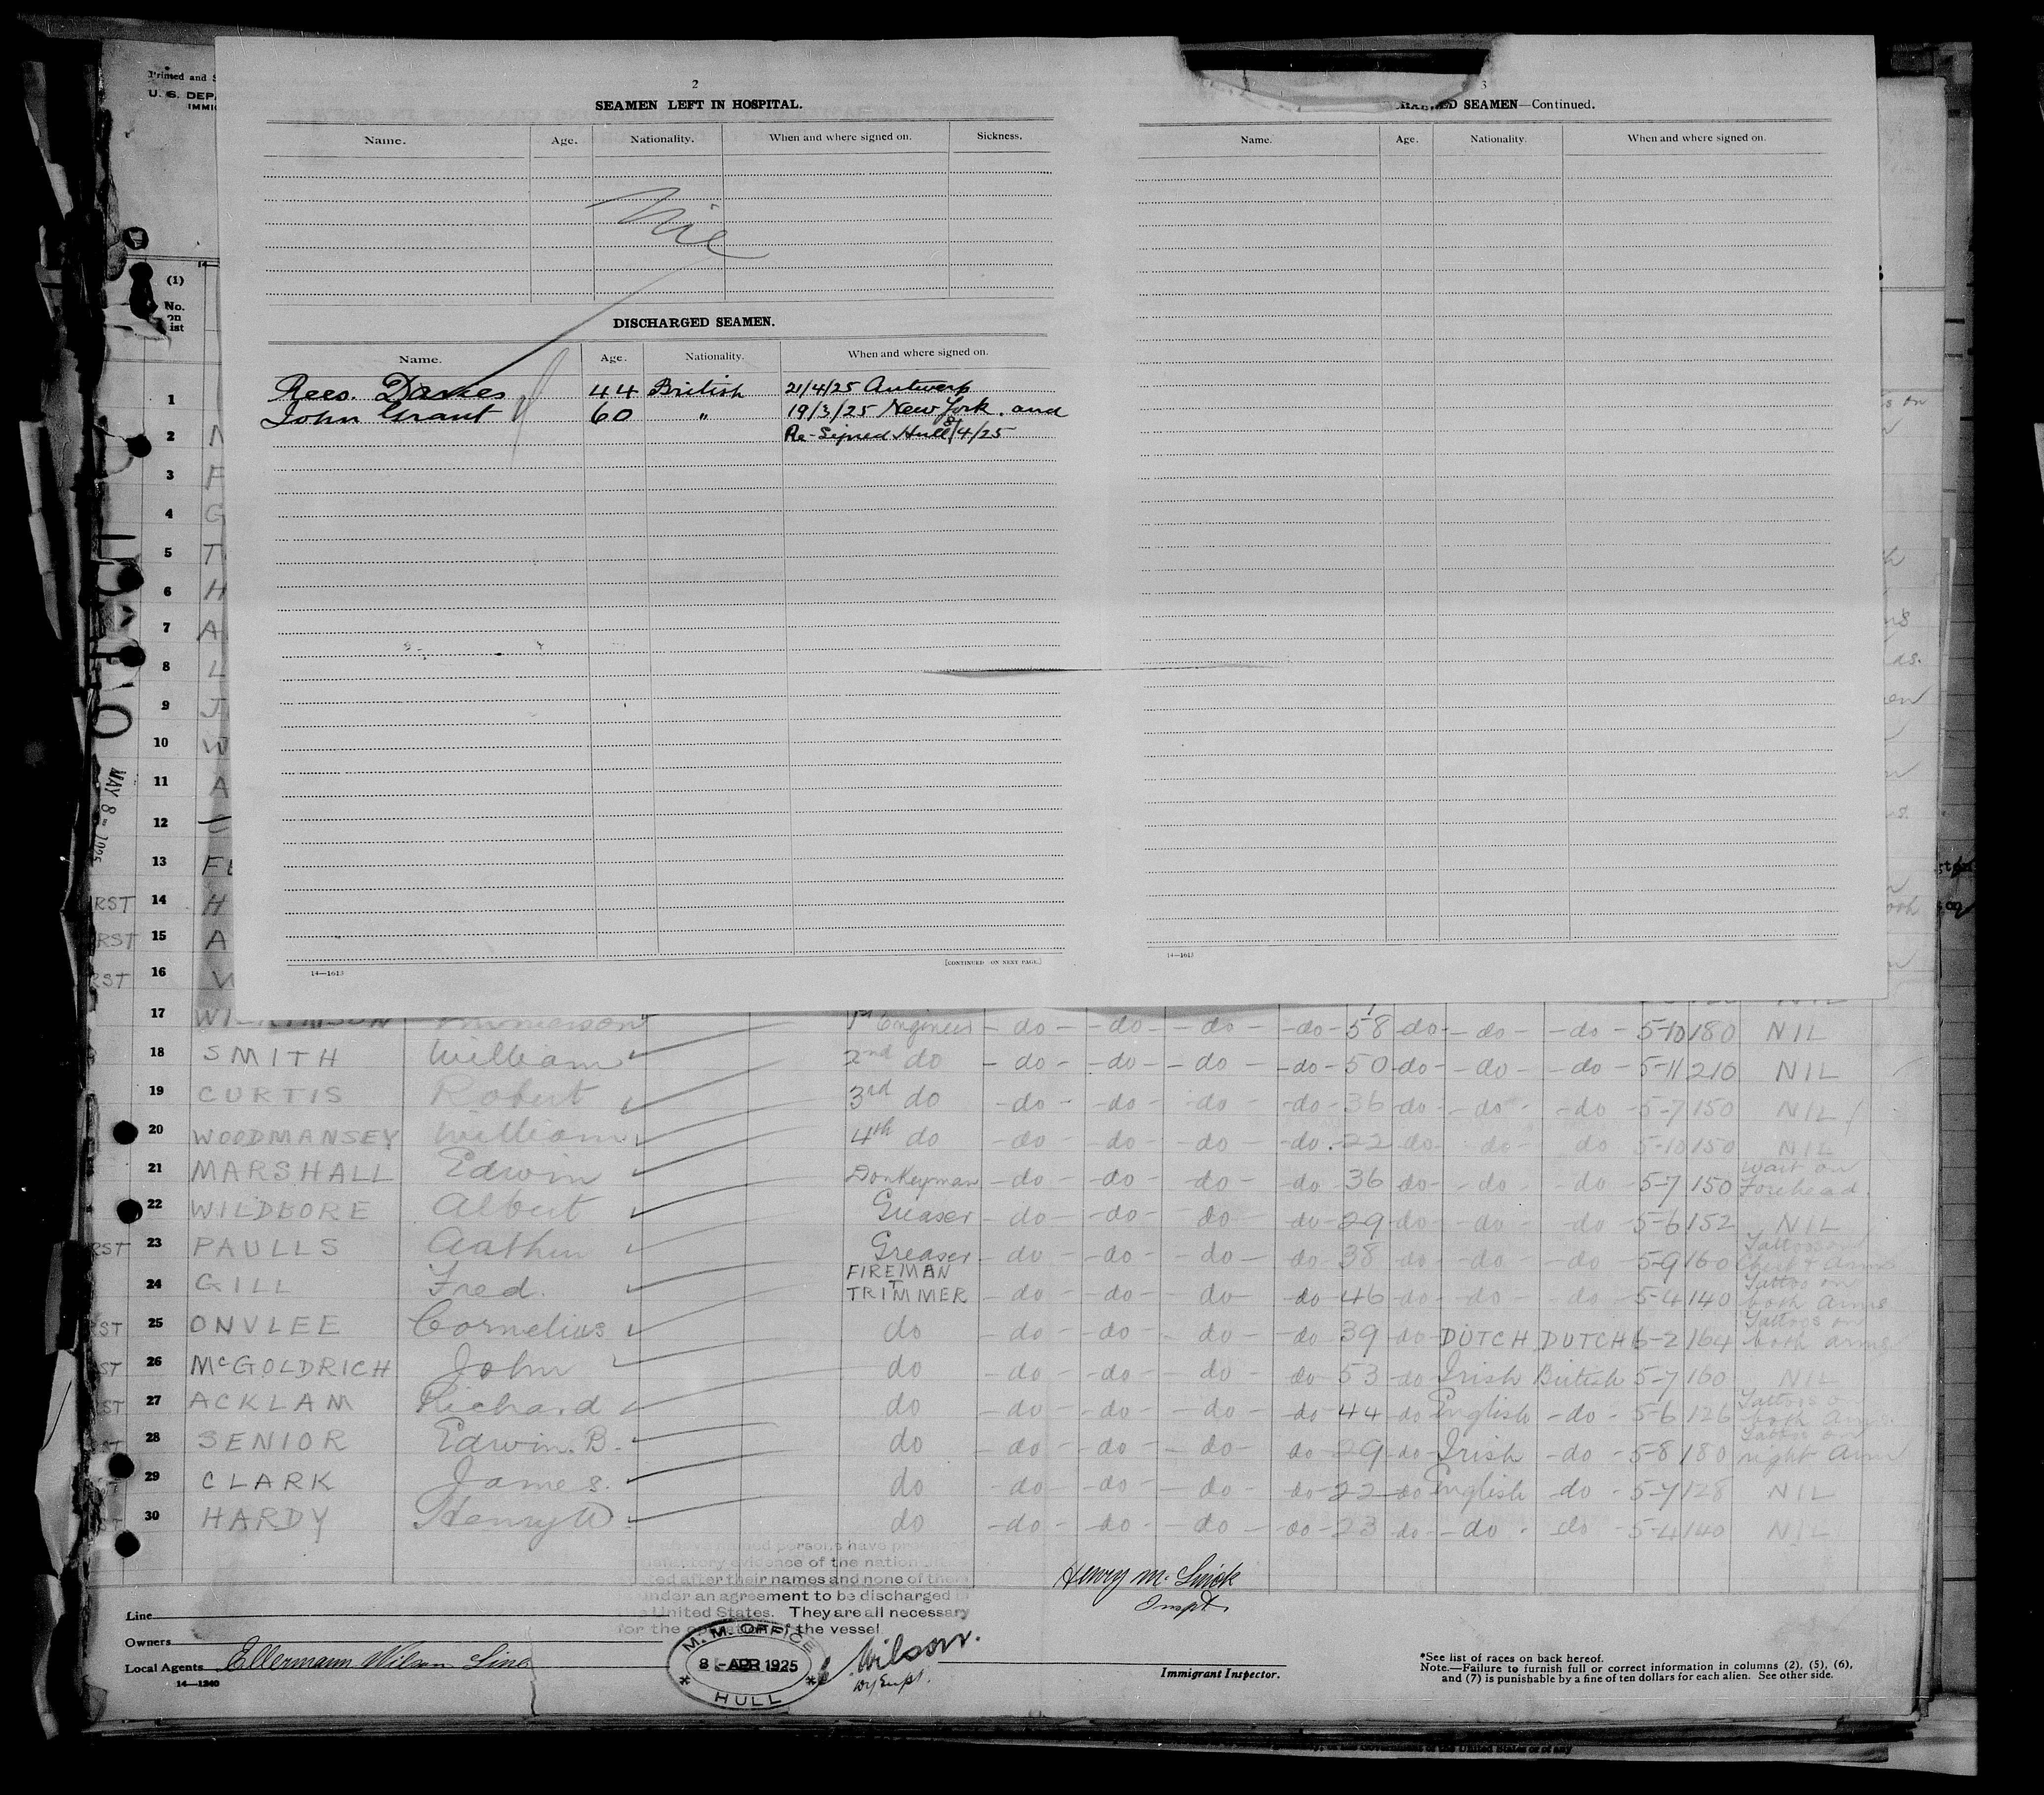 Printed and S
U. S. DEPA
IMMIG
2
SEAMEN LEFT IN HOSPITAL.
Name. Age. Nationality. When and where signed on. Sickness.
Nil
DISCHARGED SEAMEN.
Name. Age. Nationality. When and where signed on.
Rees. Davies 44 British 21/4/25 Antwerp
John Grant 60 " 19/3/25 New York. and
Re-Signed Hull 8/4/25
14—1613 [CONTINUED ON NEXT PAGE.]
3
RGED SEAMEN—Continued.
Name. Age. Nationality. When and where signed on.
14—1613
(1)
No.
on
list
1
2 N
3 F
4 G
5 T
6 H
7 A
8 L
9 J
10 W
11 A
12
13 FL
14 H
15 A
16 W
MAY 8 - 1925
17 WILKINSON 1st Engineer - do - - do - - do - - do - 58 - do - - do - - do - 5-10 180 NIL
18 SMITH William 2nd do - do - - do - - do - - do - 50 - do - - do - - do - 5-11 210 NIL
19 CURTIS Robert 3rd do - do - - do - - do - - do - 36 - do - - do - - do - 5-7 150 NIL
20 WOODMANSEY William 4th do - do - - do - - do - - do - 22 - do - - do - do 5-10 150 NIL
21 MARSHALL Edwin Donkeyman - do - - do - - do - - do - 36 - do - - do - - do - 5-7 150 Wart on Forehead.
22 WILDBORE Albert Greaser - do - - do - - do - - do - 29 - do - - do - - do - 5-6 152 NIL
RST 23 PAULLS Aathur Greaser - do - - do - - do - - do - 38 - do - - do - - do - 5-9 160 Tattoos on Chest & Arms
24 GILL Fred. FIREMAN TRIMMER - do - - do - - do - - do - 46 - do - - do - - do - 5-4 140 Tattoo on both Arms
ST 25 ONVLEE Cornelius do - do - - do - - do - - do - 39 - do - DUTCH DUTCH 6-2 164 Tattoos on both arms
ST 26 McGOLDRICH John do - do - - do - - do - - do - 53 - do - Irish British 5-7 160 NIL
ST 27 ACKLAM Richard do - do - - do - - do - - do - 44 - do - English - do - 5-6 126 Tattoos on both Arms.
ST 28 SENIOR Edwin. B. do - do - - do - - do - - do - 29 - do - Irish - do - 5-8 180 Tattoo on right Arm
29 CLARK James. do - do - - do - - do - - do - 22 - do - English - do - 5-7 128 NIL
ST 30 HARDY Henry W. do - do - - do - - do - - do - 23 - do - - do - - do - 5-4 140 NIL
above named persons have pro
factory evidence of the nation
ted after their names and none of them
under an agreement to be discharged
United States. They are all necessary
for the operation of the vessel.
Henry M.
Inspt.
Line
Owners
Local Agents Ellermann Wilson Line
14—1240
M. M. OFFICE
8 - APR 1925
HULL
Wilson.
Immigrant Inspector.
*See list of races on back hereof.
Note.—Failure to furnish full or correct information in columns (2), (5), (6),
and (7) is punishable by a fine of ten dollars for each alien. See other side.